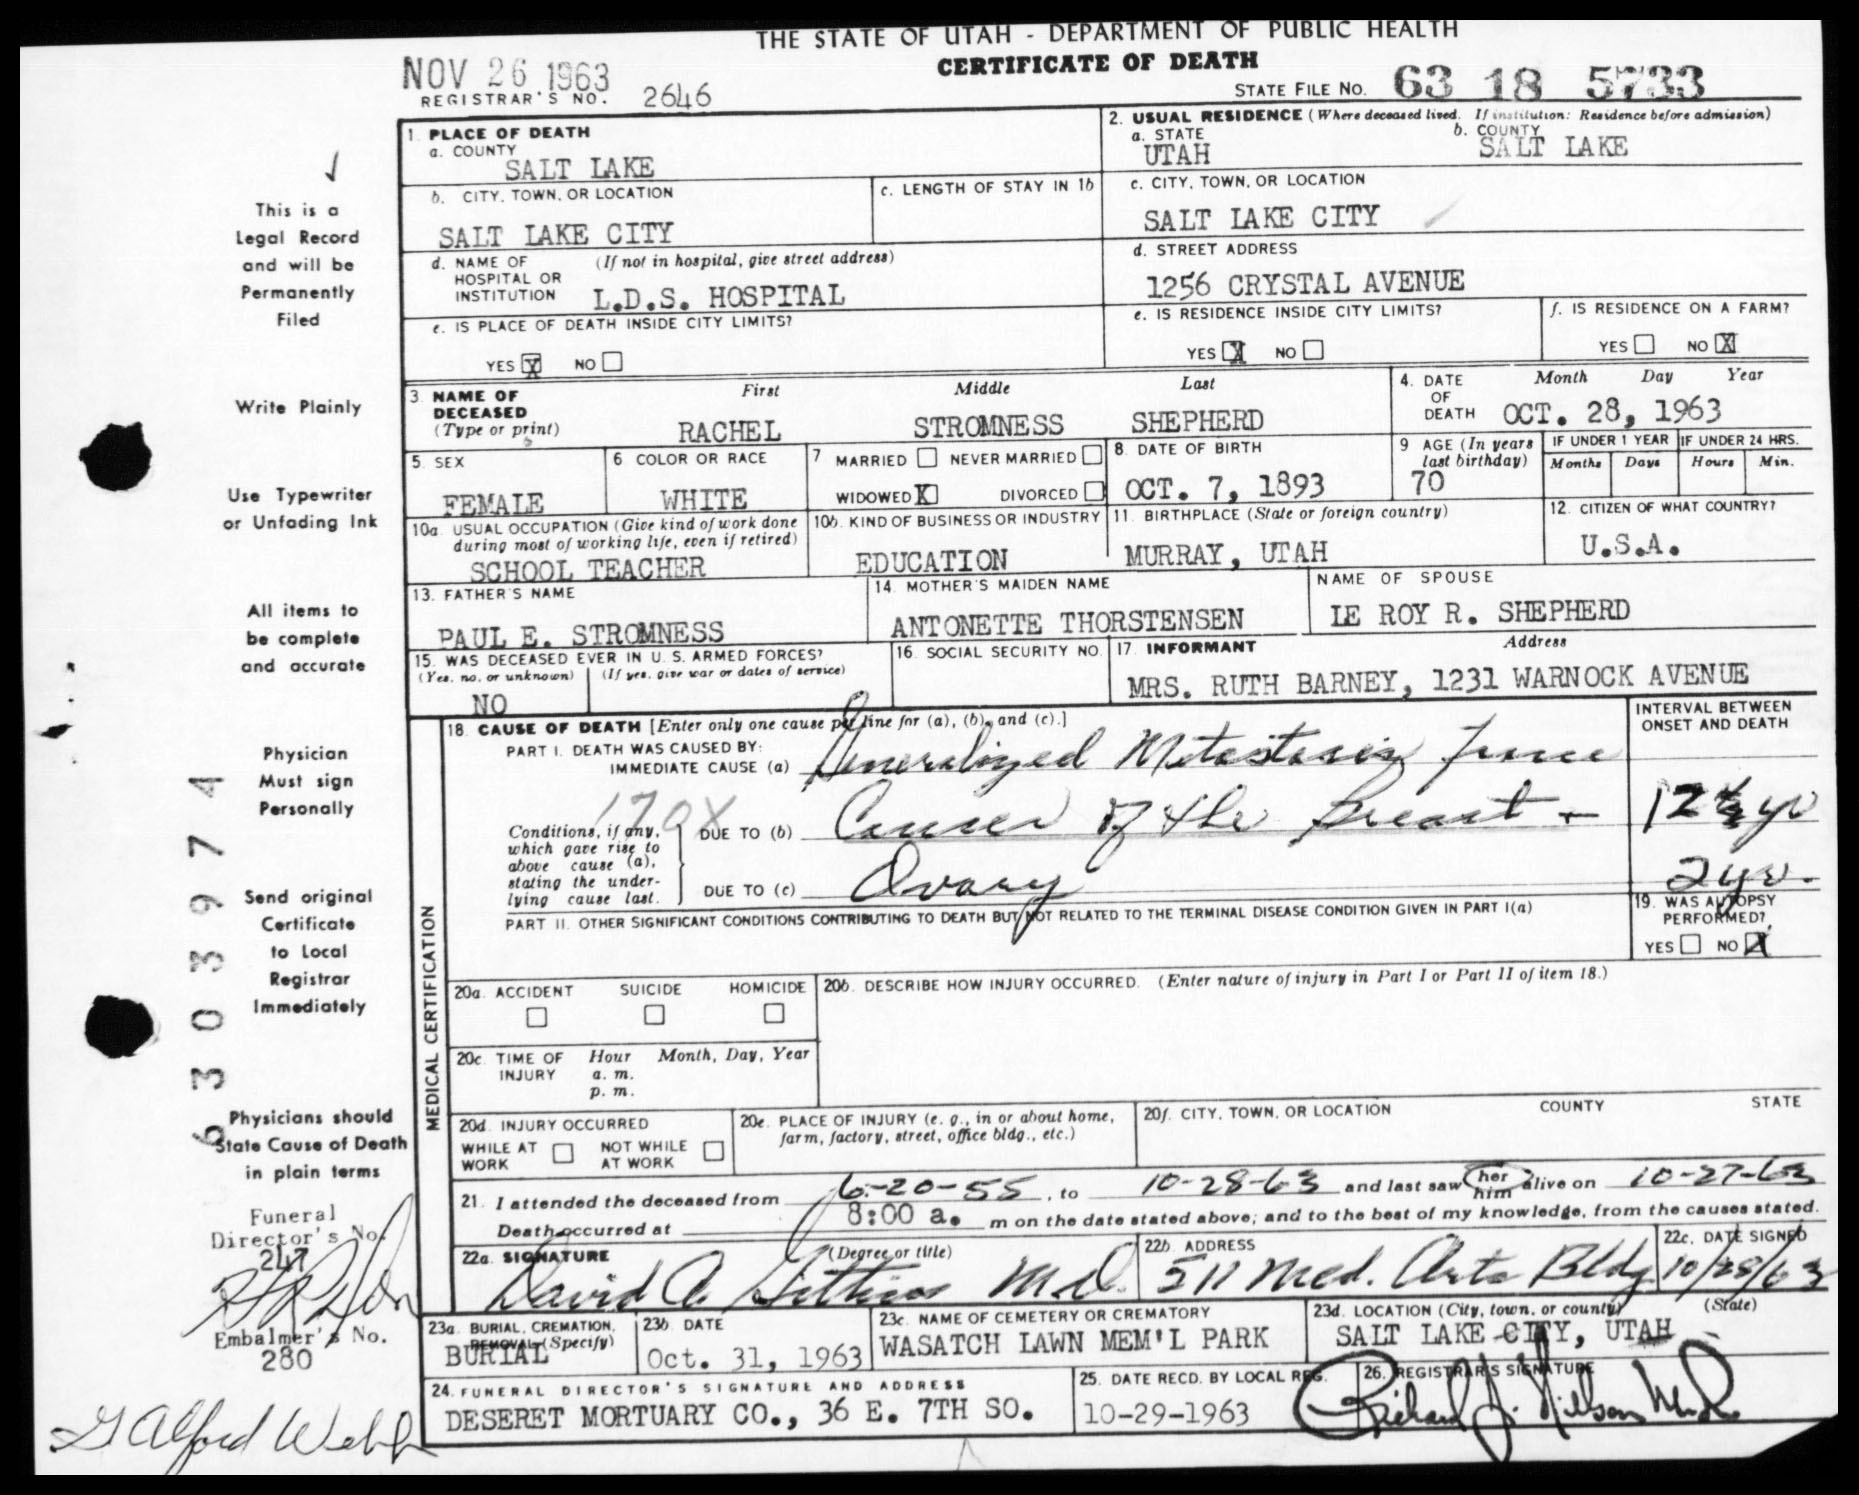 THE STATE OF UTAH - DEPARTMENT OF PUBLIC HEALTH
CERTIFICATE OF DEATH
NOV 26 1963
REGISTRAR'S NO. 2646
STATE FILE NO. 63 18 5733
1. PLACE OF DEATH
a. COUNTY
SALT LAKE
2. USUAL RESIDENCE (Where deceased lived. If institution: Residence before admission)
a. STATE
UTAH
b. COUNTY
SALT LAKE
b. CITY, TOWN, OR LOCATION
SALT LAKE CITY
c. LENGTH OF STAY IN 1b
c. CITY, TOWN, OR LOCATION
SALT LAKE CITY
d. NAME OF (If not in hospital, give street address)
HOSPITAL OR
INSTITUTION L.D.S. HOSPITAL
d. STREET ADDRESS
1256 CRYSTAL AVENUE
e. IS PLACE OF DEATH INSIDE CITY LIMITS?
YES X NO
e. IS RESIDENCE INSIDE CITY LIMITS?
YES X NO
f. IS RESIDENCE ON A FARM?
YES NO X
3. NAME OF DECEASED
(Type or print)
First Middle Last
RACHEL STROMNESS SHEPHERD
4. DATE OF DEATH
Month Day Year
OCT. 28, 1963
5. SEX
FEMALE
6 COLOR OR RACE
WHITE
7 MARRIED NEVER MARRIED
WIDOWED X DIVORCED
8. DATE OF BIRTH
OCT. 7, 1893
9 AGE (In years last birthday)
70
IF UNDER 1 YEAR
Months Days
IF UNDER 24 HRS.
Hours Min.
10a. USUAL OCCUPATION (Give kind of work done
during most of working life, even if retired)
SCHOOL TEACHER
10b. KIND OF BUSINESS OR INDUSTRY
EDUCATION
11. BIRTHPLACE (State or foreign country)
MURRAY, UTAH
12. CITIZEN OF WHAT COUNTRY?
U.S.A.
13. FATHER'S NAME
PAUL E. STROMNESS
14. MOTHER'S MAIDEN NAME
ANTONETTE THORSTENSEN
NAME OF SPOUSE
LE ROY R. SHEPHERD
15. WAS DECEASED EVER IN U.S. ARMED FORCES?
(Yes, no, or unknown) (If yes, give war or dates of service)
NO
16. SOCIAL SECURITY NO.
17. INFORMANT Address
MRS. RUTH BARNEY, 1231 WARNOCK AVENUE
MEDICAL CERTIFICATION
18. CAUSE OF DEATH [Enter only one cause per line for (a), (b), and (c).]
INTERVAL BETWEEN
ONSET AND DEATH
PART I. DEATH WAS CAUSED BY:
IMMEDIATE CAUSE (a) Generalized Metastasis from
170X
Conditions, if any,
which gave rise to
above cause (a),
stating the under-
lying cause last.
DUE TO (b) Cancer of the Breast - 12 ½ yr
DUE TO (c) Ovary 2 yr.
PART II. OTHER SIGNIFICANT CONDITIONS CONTRIBUTING TO DEATH BUT NOT RELATED TO THE TERMINAL DISEASE CONDITION GIVEN IN PART I(a)
19. WAS AUTOPSY
PERFORMED?
YES NO X
20a. ACCIDENT SUICIDE HOMICIDE
20b. DESCRIBE HOW INJURY OCCURRED. (Enter nature of injury in Part I or Part II of item 18.)
20c. TIME OF INJURY
Hour Month, Day, Year
a. m.
p. m.
20d. INJURY OCCURRED
WHILE AT WORK NOT WHILE AT WORK
20e. PLACE OF INJURY (e. g., in or about home,
farm, factory, street, office bldg., etc.)
20f. CITY, TOWN, OR LOCATION COUNTY STATE
21. I attended the deceased from 6-20-55, to 10-28-63 and last saw her him alive on 10-27-63
Death occurred at 8:00 a. m on the date stated above; and to the best of my knowledge, from the causes stated.
22a. SIGNATURE (Degree or title)
David A. M.D.
22b. ADDRESS
511 Med. Arts Bldg
22c. DATE SIGNED
10/28/63
23a. BURIAL, CREMATION,
REMOVAL (Specify)
BURIAL
23b. DATE
Oct. 31, 1963
23c. NAME OF CEMETERY OR CREMATORY
WASATCH LAWN MEM'L PARK
23d. LOCATION (City, town, or county) (State)
SALT LAKE CITY, UTAH
24. FUNERAL DIRECTOR'S SIGNATURE AND ADDRESS
DESERET MORTUARY CO., 36 E. 7TH SO.
25. DATE RECD. BY LOCAL REG.
10-29-1963
26. REGISTRAR'S SIGNATURE
Richard J. Nilson
This is a
Legal Record
and will be
Permanently
Filed
Write Plainly
Use Typewriter
or Unfading Ink
All items to
be complete
and accurate
Physician
Must sign
Personally
Send original
Certificate
to Local
Registrar
Immediately
Physicians should
State Cause of Death
in plain terms
6303974
Funeral
Director's No.
247
Embalmer's No.
280
G Alford Webb